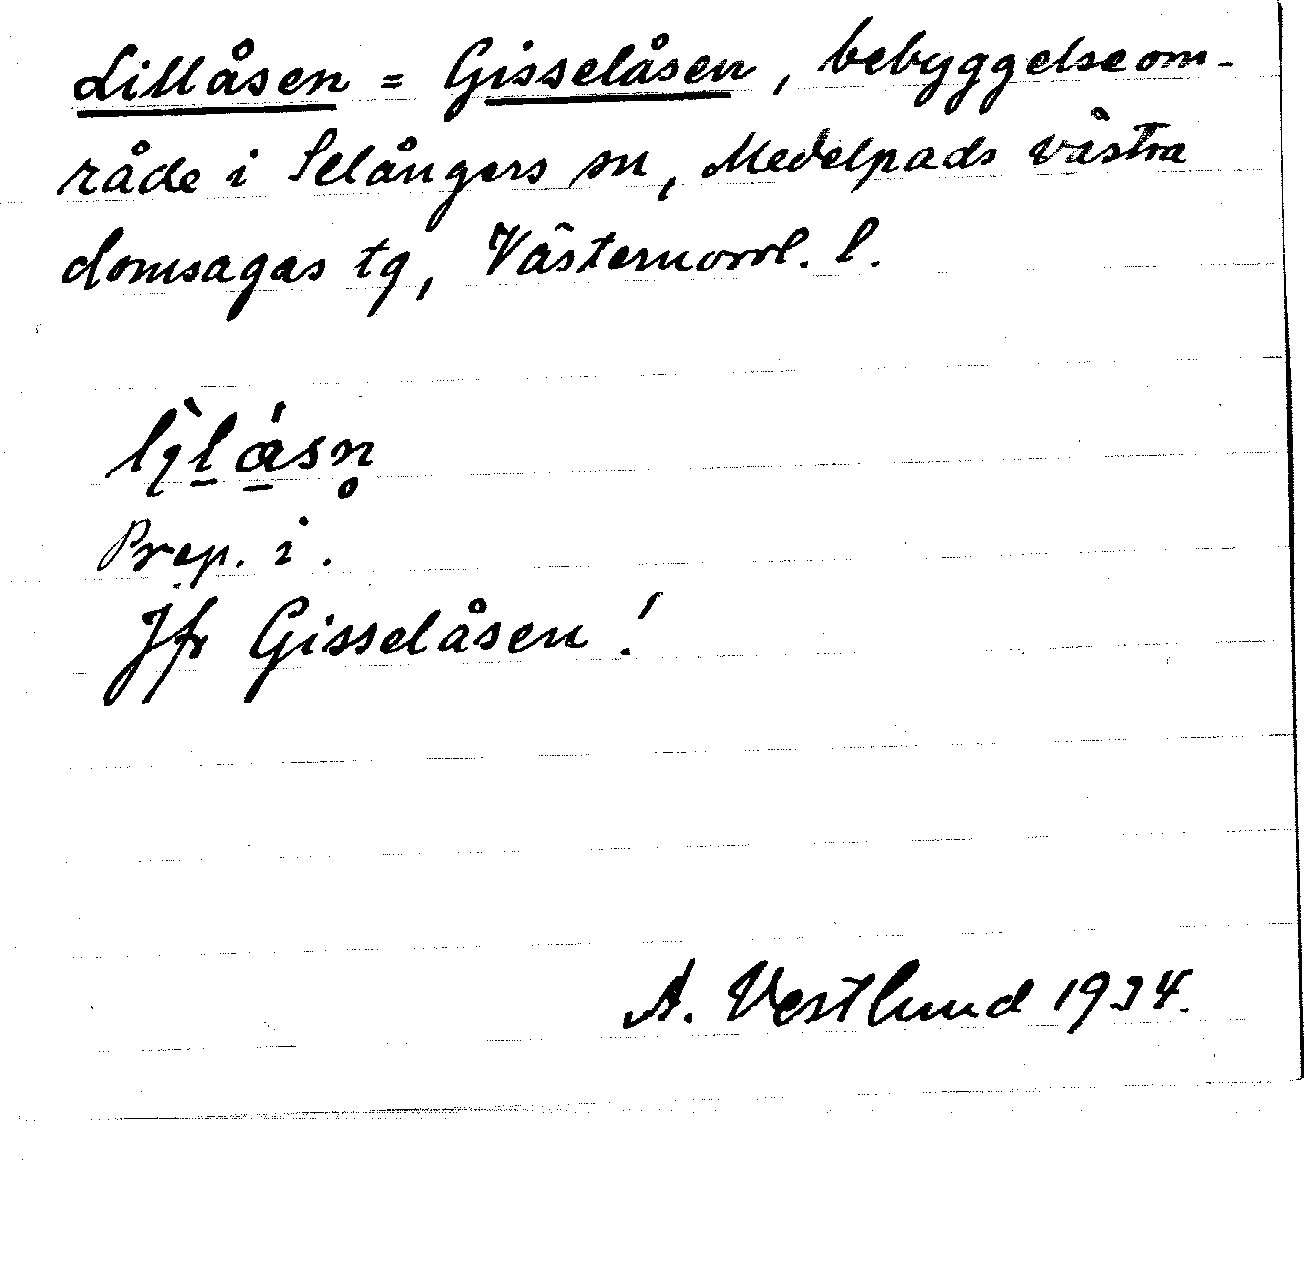 Lillåsen = Gisselåsen, bebyggelseom-
råde i Selångers sn, Medelpads västra
domsagas tg, Västernorrl. l.
Prep. i.
Jfr Gisselåsen!
A. Vestlund 1934.